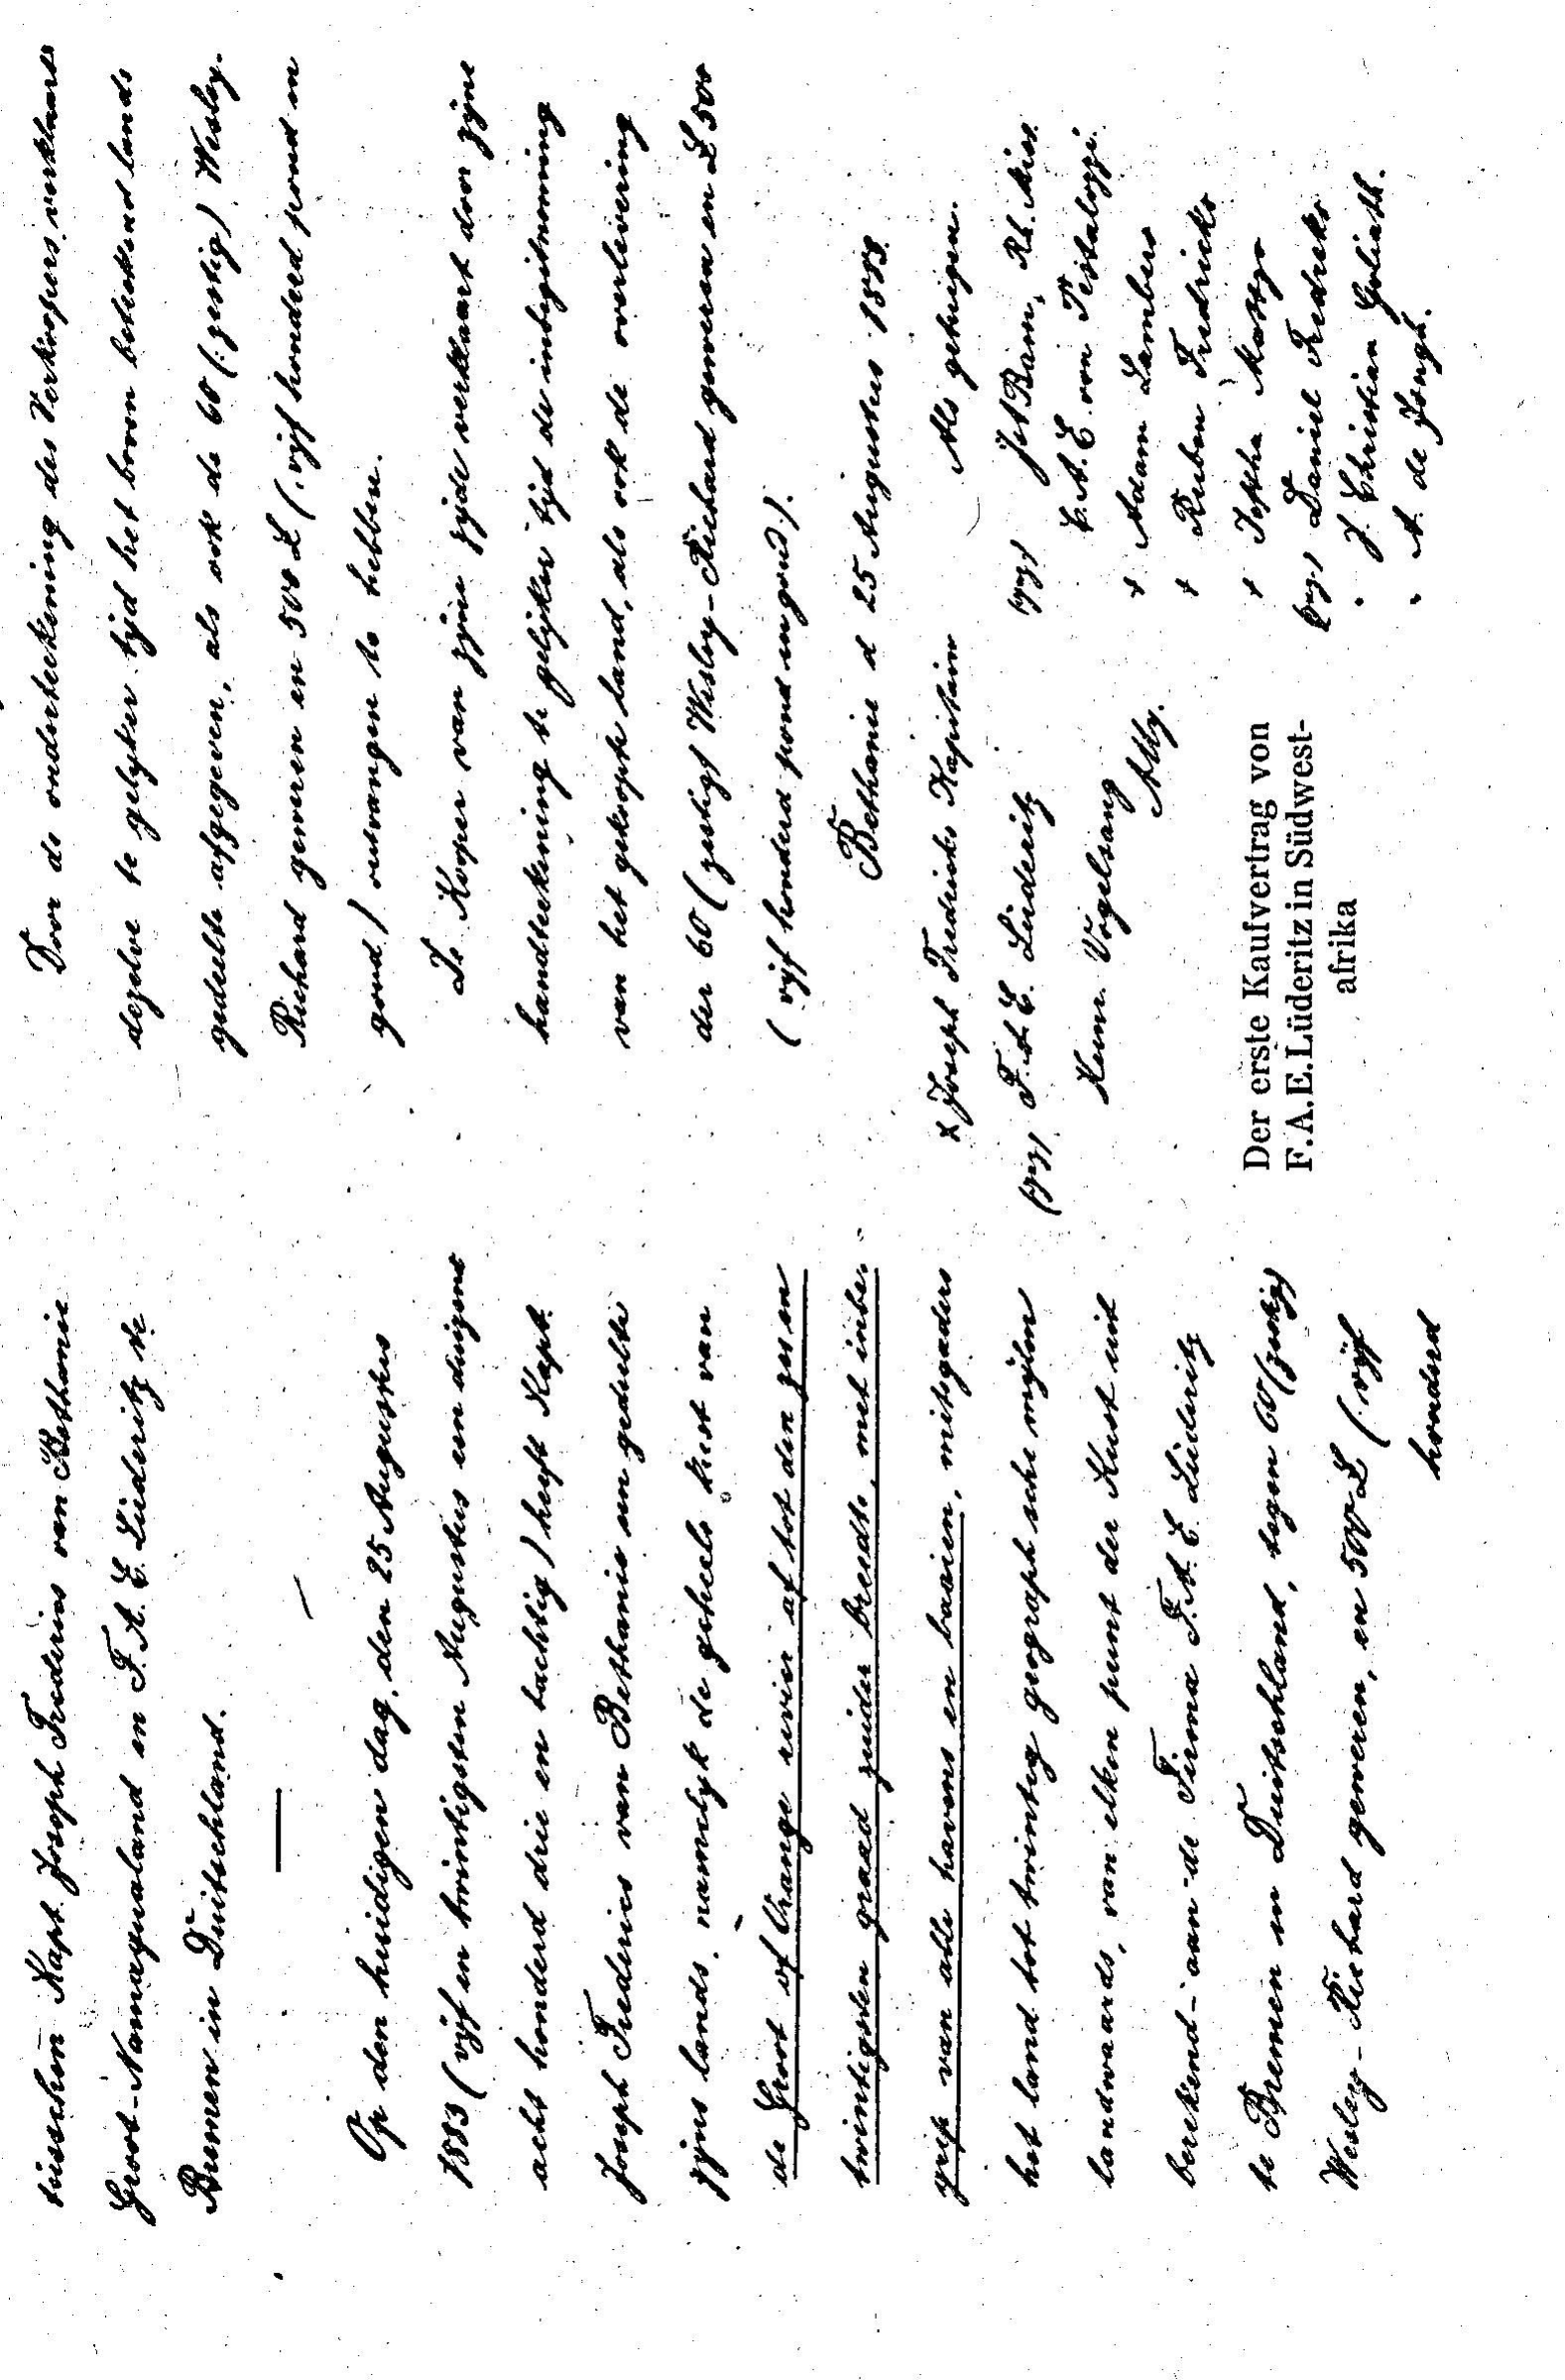 tusschen Kapt. Joseph Frederics van Bethanie
Groot-Namaqualand en F. A. E. Lüderitz te
Bremen in Duitschland.
Op den huidigen dag, den 25 Augustus
1883 (vijf en twintigsten Augustus een duizend
acht honderd drie en tachtig) heeft Kapt.
Joseph Frederics van Bethanie een gedeelte
zijns lands, namelijk de geheele kust van
de Groot of Orange rivier af tot den zes en
twintigsten graad zuider breedte, met inbe-
grip van alle havens en baaien, mitsgaders
het land tot twintig geographsche mijlen
landwaards, van elken punt der Kust uit
berekend - aan de Firma F. A. E. Lüderitz
te Bremen in Duitschland, tegen 60 (zestig)
Wesley-Richard geweren, en 500 £ (vijf
honderd
Door de onderteekening des Verkoopers, verklaard
dezelve te gelyker tyd het boven betekend lands
gedeelte afgegeven, als ook de 60 (:zestig) Wesley-
Richard geweren en 500 £ (:vijf honderd pond in
goud) ontvangen te hebben.
De Kooper van zijne zijde verklaart door zijne
handteekening te gelijker tijd de inbezitneming
van het gekoopte land, als ook de overlevering
der 60 (zestig) Wesley-Richard geweren en £ 500
(vijf honderd pond in goud).
Bethanie d 25 Augustus 1883.
Als getuigen.
x Joseph Fredericks Kapitein
(gez) F. A. E. Lüderitz
Heinr. Vogelsang
(gez) Joh Bam, Rh. Miss.
C. A. E. von Pestalozzi.
+ Adam Lambers
+ Ruben Fredricks
+
(gez) Daniel Fredriks
" J. Christian Goliath.
" A. de Jongh.
Der erste Kaufvertrag von
F. A. E. Lüderitz in Südwest-
afrika